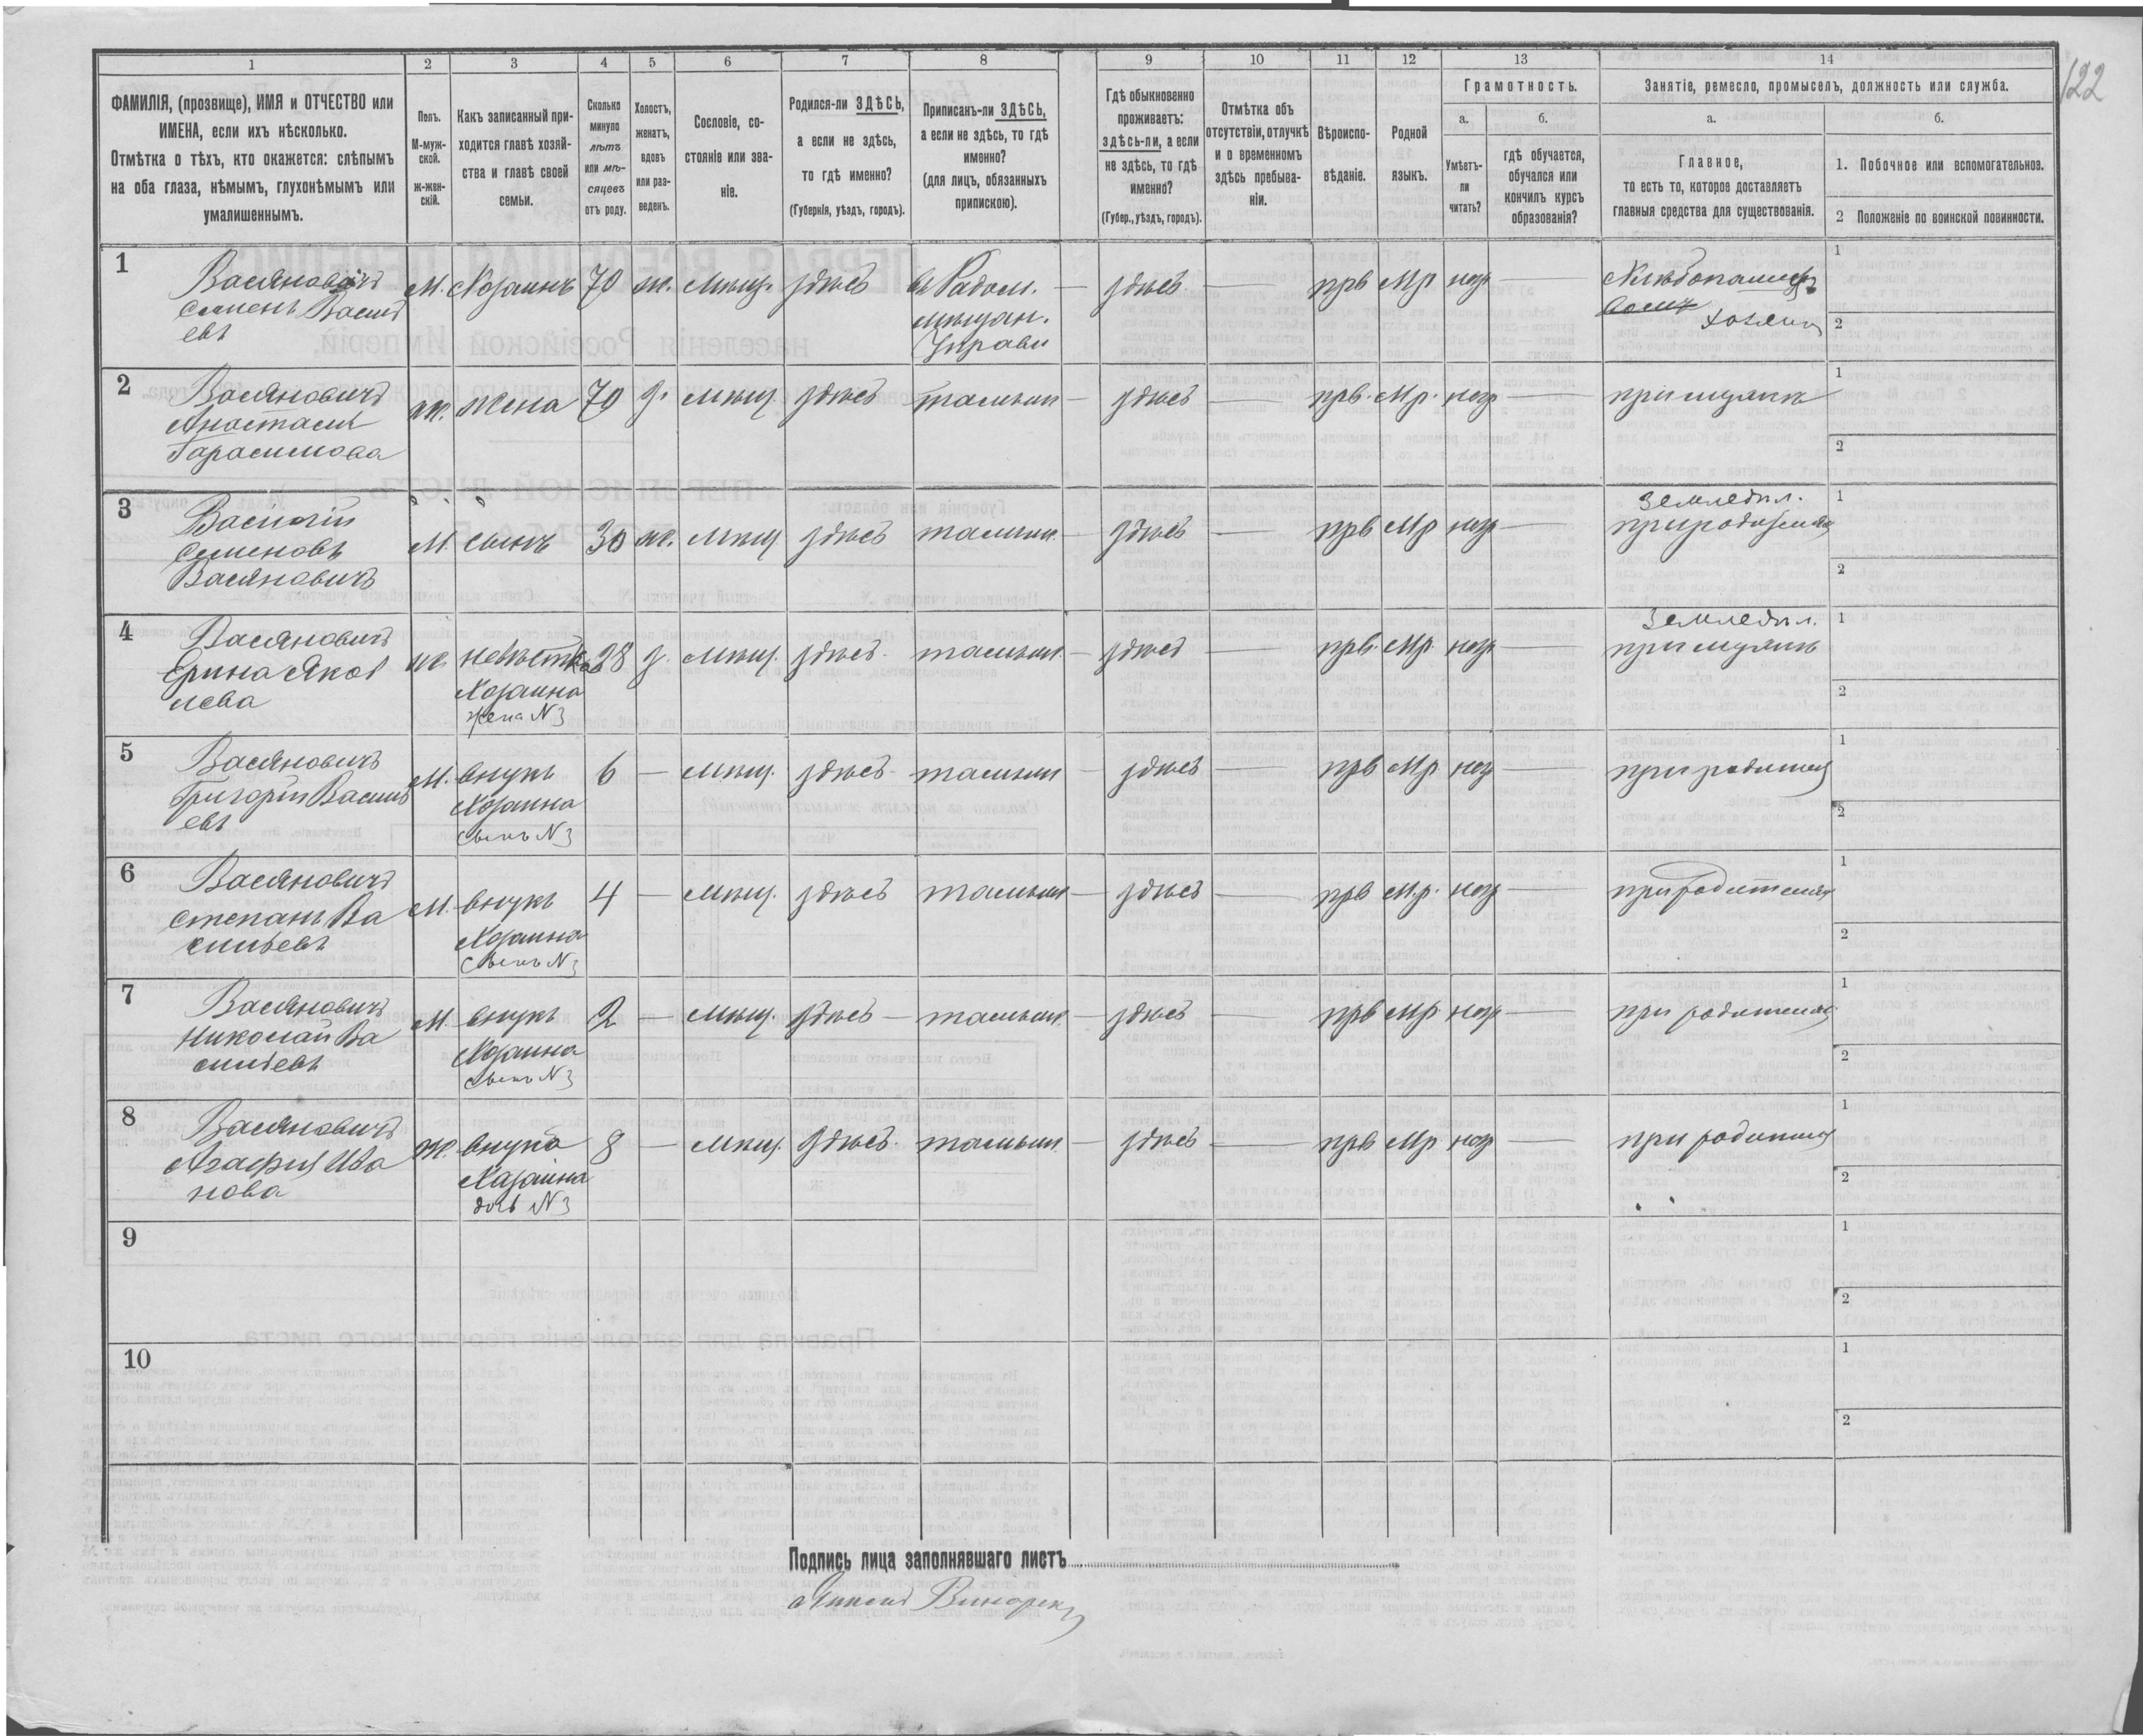 122
1 2 3 4 5 6 7 8 9 10 11 12 13 14
ФАМИЛІЯ, (прозвище), ИМЯ и ОТЧЕСТВО или
ИМЕНА, если ихъ нѣсколько.
Отмѣтка о тѣхъ, кто окажется: слѣпымъ
на оба глаза, нѣмымъ, глухонѣмымъ или
умалишеннымъ.
Полъ.
М-муж-
ской.
ж-жен-
скій.
Какъ записанный при-
ходится главѣ хозяй-
ства и главѣ своей
семьи.
Сколько
минуло
лѣтъ
или мѣ-
сяцевъ
отъ роду.
Холостъ,
женатъ,
вдовъ
или раз-
веденъ.
Сословіе, со-
стояніе или зва-
ніе.
Родился-ли ЗДѢСЬ,
а если не здѣсь,
то гдѣ именно?
(Губернія, уѣздъ, городъ).
Приписанъ-ли ЗДѢСЬ,
а если не здѣсь, то гдѣ
именно?
(для лицъ, обязанныхъ
припискою).
Гдѣ обыкновенно
проживаетъ:
здѣсь-ли, а если
не здѣсь, то гдѣ
именно?
(Губер., уѣздъ, городъ).
Отмѣтка объ
отсутствіи, отлучкѣ
и о временномъ
здѣсь пребыва-
ніи.
Вѣроиспо-
вѣданіе.
Родной
языкъ.
Грамотность.
а.
Умѣетъ-
ли
читать?
б.
гдѣ обучается,
обучался или
кончилъ курсъ
образованія?
Занятіе, ремесло, промыселъ, должность или служба.
а.
Главное,
то есть то, которое доставляетъ
главныя средства для существованія.
б.
1. Побочное или вспомогательное.
2 Положеніе по воинской повинности.
1
Васяновичъ
Семенъ Васил
евъ
М. Хозаинъ 70 ж. Мѣщ. здѣсь
въ Радом.
мѣщан.
Управи
— здѣсь — прв Мр незр —
Хлѣбопашец
хозяин
1
2
2
Васяновичъ
Анастасия
Гарасимова
ж. жена 70 з. мѣщ. здѣсь тамъжи — здѣсь — прв. Мр. незр — при мужи
1
2
3
Василий
Семеновъ
Васяновичъ
М. сынъ 30 ж. мѣщ здѣсь тамжи — здѣсь — прв Мр незр —
Земледѣл.
при родителях
1
2
4
Васяновичъ
Ерина Яков
лева
ж невѣстка
Хозаина
жена N 3
28 з. мѣщ. здѣсь тамжи — здѣсь — прв. Мр. незр —
Земледѣл.
при мужи
1
2
5
Васяновичъ
Григорій Васил
евъ
М. внукъ
Хозаина
сынъ N 3
6 — мѣщ. здѣсь тамжи — здѣсь — прв Мр незр — при родител
1
2
6
Васяновичъ
Степанъ Ва
сильевъ
М. внукъ
Хозаина
сынъ N 3
4 — мѣщ. здѣсь тамжи — здѣсь — прв Мр. незр — при родителях
1
2
7
Васяновичъ
Николай Ва
сильевъ
М внукъ
Хозаина
сынъ N 3
2 — мѣщ. здѣсь — тамжи — здѣсь — прв Мр незр — при родителях
1
2
8
Васяновичъ
Агафия Ива
нова
ж. внука
Хазаина
дочь N 3
8 — мѣщ. здѣсь. тамжи — здѣсь — прв Мр незр — при родител
1
2
9
1
2
10
1
2
Подпись лица заполнявшаго листъ